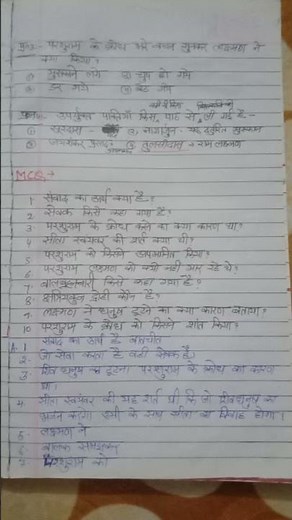 प्रश्न:- परशुराम के क्रोध भरे वचन सुनकर लक्ष्मण ने
क्या किया?
① मुस्काने लगे ② चुप हो गये
③ डर गये ④ बैठ गए
उपर्युक्त पंक्तियाँ किस पाठ से ली गई है-
① सूरदास
③ जयशंकर प्रसाद ④ तुलसीदास - राम लक्ष्मण
MCQ →
1 संवाद का अर्थ क्या है?
2 सेवक किसे कहा गया है?
3 परशुराम के क्रोध करने का क्या कारण था?
4 सीता स्वयंवर की शर्त क्या थी?
5 परशुराम को किसने अपमानित किया?
6 परशुराम लक्ष्मण को क्यों नहीं मार रहे थे?
7 बालब्रह्मचारी किसे कहा गया है?
8 क्षत्रियकुल द्रोही कौन है?
9 लक्ष्मण ने धनुष टूटने का क्या कारण बताया?
10 परशुराम के क्रोध को किसने शांत किया?
A. 1 संवाद का अर्थ है- बातचीत
2. जो सेवा करता है वही सेवक है।
3. शिव धनुष का टूटना परशुराम के क्रोध का कारण
था।
4. सीता स्वयंवर की यह शर्त थी कि जो शिवधनुष का
करेगा उसी के साथ सीता का विवाह होगा।
5. लक्ष्मण ने
6. बालक समझकर
7. परशुराम को